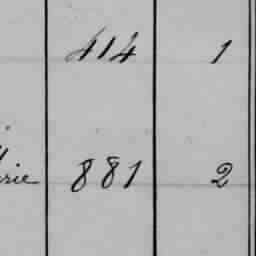 414 1
rie 881 2